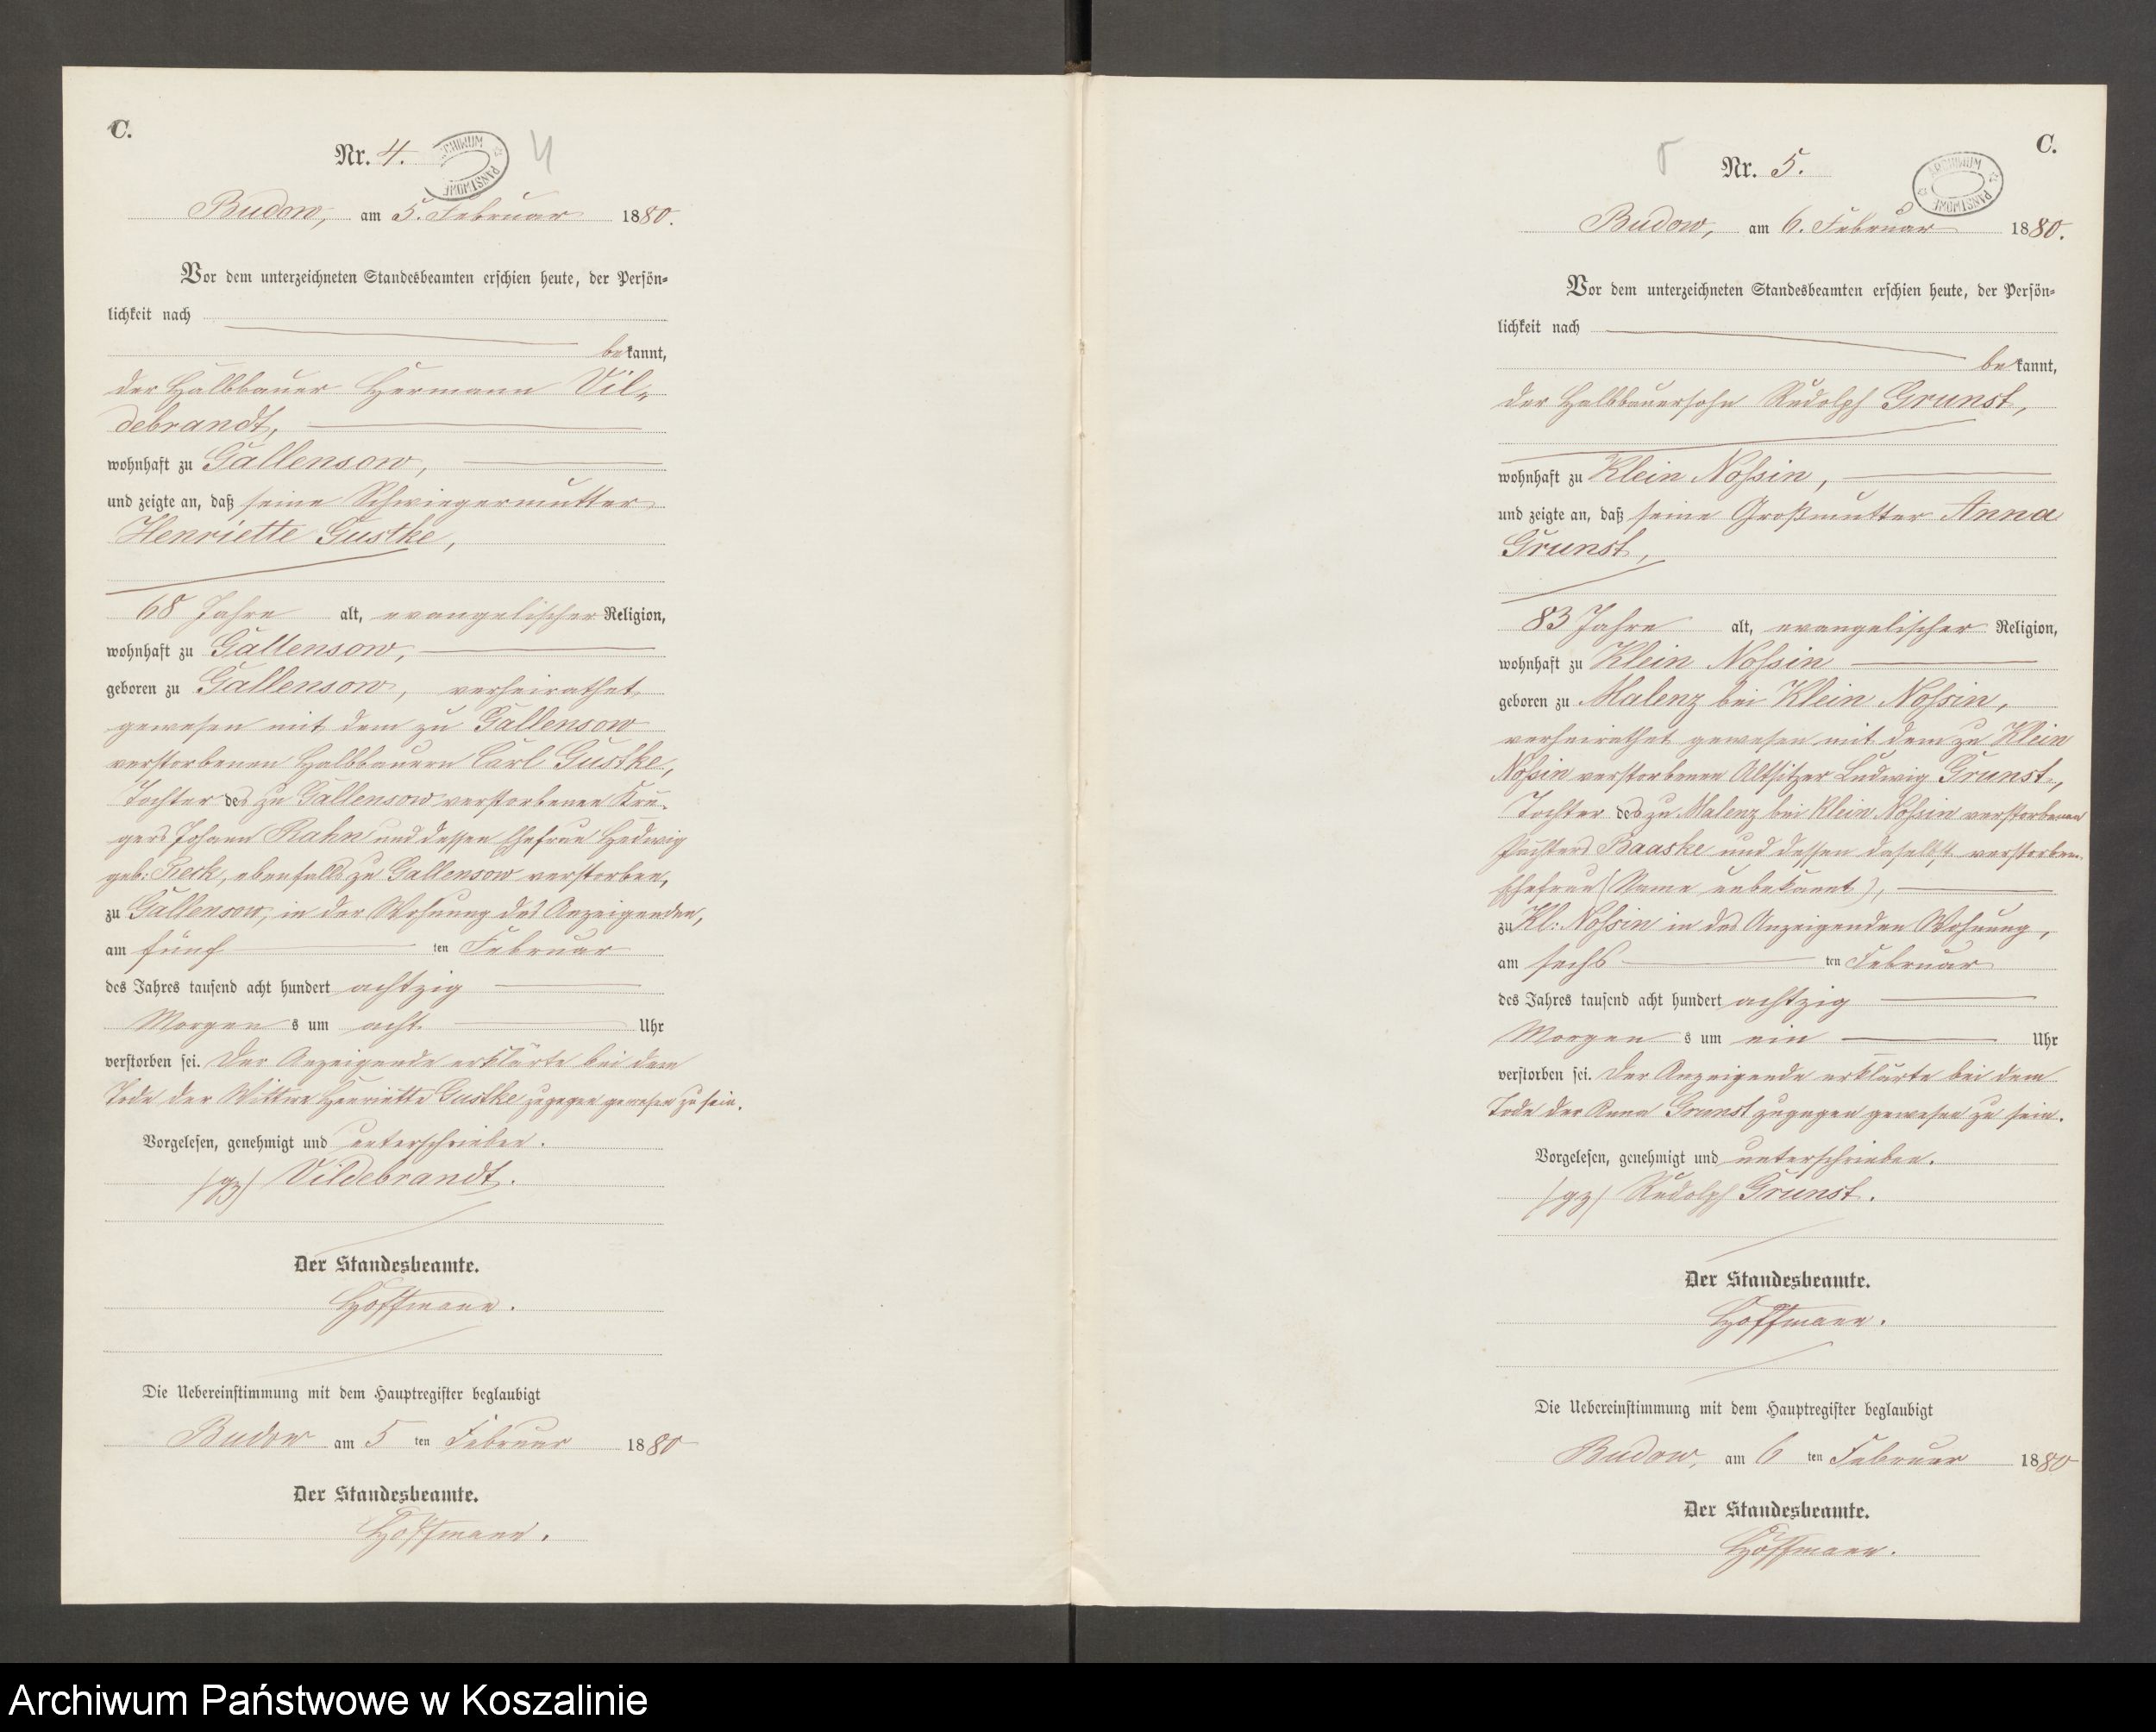 C.
Nr. 4.
ARCHIWUM PAŃSTWOWE
4
Budow, am 5. Februar 1880.
Vor dem unterzeichneten Standesbeamten erschien heute, der Persön=
lichkeit nach
bekannt,
der Halbbauer Hermann Vil=
debrandt,
wohnhaft zu Gallensow,
und zeigte an, daß seine Schwiegermutter
Henriette Gustke,
68 Jahre alt, evangelischer Religion,
wohnhaft zu Gallensow,
geboren zu Gallensow, verheirathet
gewesen mit dem zu Gallensow
verstorbenen Halbbauern Carl Gustke,
Tochter des zu Gallensow verstorbenen Krü=
gers Johann Rahn und dessen Ehefrau Hedwig
geb: , ebenfalls zu Gallensow verstorben,
zu Gallensow, in der Wohnung des Anzeigenden,
am fünf ten Februar
des Jahres tausend acht hundert achtzig
Morgens um acht Uhr
verstorben sei. Der Anzeigende erklärte bei dem
Tode der Wittwe Henriette Gustke zugegen gewesen zu sein.
Vorgelesen, genehmigt und unterschrieben.
(gz) Vildebrandt.
Der Standesbeamte.
Hoffmann.
Die Uebereinstimmung mit dem Hauptregister beglaubigt
Budow am 5 ten Februar 1880
Der Standesbeamte.
Hoffmann.
C.
5
Nr. 5.
ARCHIWUM PAŃSTWOWE
Budow, am 6. Februar 1880.
Vor dem unterzeichneten Standesbeamten erschien heute, der Persön=
lichkeit nach
bekannt,
der Halbbauersohn Rudolph Grunst,
wohnhaft zu Klein Nossin,
und zeigte an, daß seine Großmutter Anna
Grunst,
83 Jahre alt, evangelischer Religion,
wohnhaft zu Klein Nossin
geboren zu Malenz bei Klein Nossin,
verheirathet gewesen mit dem zu Klein
Nossin verstorbenen Altsitzer Ludwig Grunst,
Tochter des zu Malenz bei Klein Nossin verstorbenen
Pächters Baaske und dessen daselbst verstorben.
Ehefrau (Name unbekannt),
zu Kl: Nossin in des Anzeigenden Wohnung,
am sechs ten Februar
des Jahres tausend acht hundert achtzig
Morgens um ein Uhr
verstorben sei. Der Anzeigende erklärte bei dem
Tode der Anna Grunst zugegen gewesen zu sein.
Vorgelesen, genehmigt und unterschrieben.
(gz) Rudolph Grunst.
Der Standesbeamte.
Hoffmann.
Die Uebereinstimmung mit dem Hauptregister beglaubigt
Budow, am 6 ten Februar 1880
Der Standesbeamte.
Hoffmann.
Archiwum Państwowe w Koszalinie